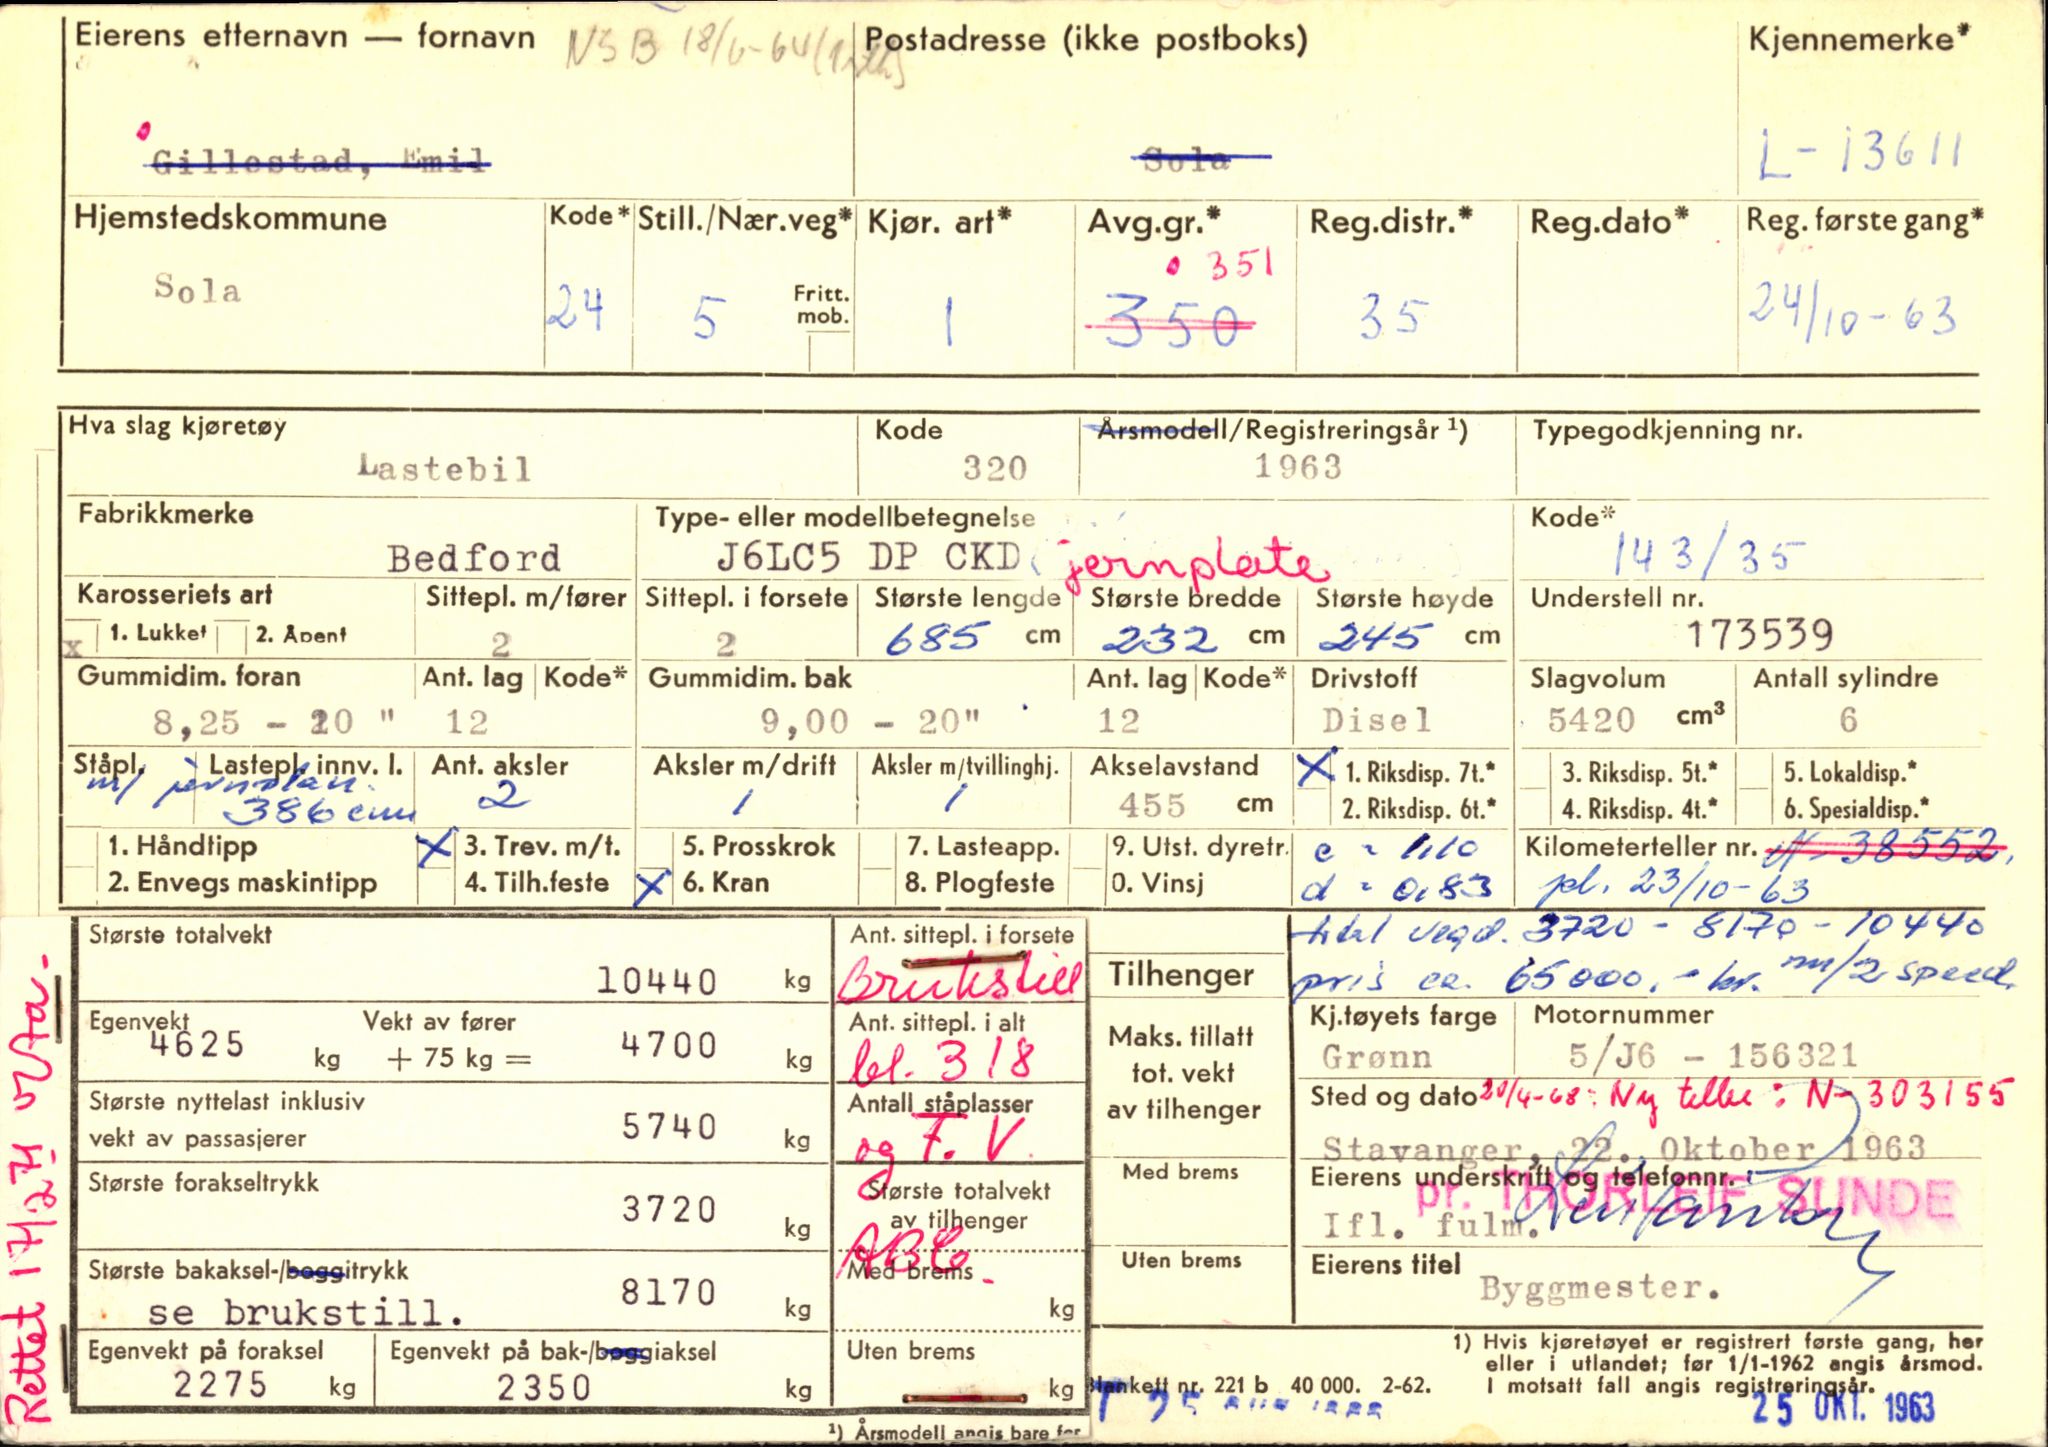 Eierens etternavn — fornavn NSB 18/6-64 Postadresse (ikke postboks) Kjennemerke*
Gillestad, Emil Sola L-13611
Hjemstedskommune Kode* Still./Nær.veg* Kjør. art* Avg.gr.* Reg.distr.* Reg.dato* Reg. første gang*
351
Sola 24 5 Fritt. mob. 1 350 35 24/10-63
Hva slag kjøretøy Kode Årsmodell/Registreringsår ¹) Typegodkjenning nr.
Lastebil 320 1963
Fabrikkmerke Type- eller modellbetegnelse Kode*
Bedford J6LC5 DP CKD jernplate 143/35
Karosseriets art Sittepl. m/fører Sittepl. i forsete Største lengde Største bredde Største høyde Understell nr.
x 1. Lukket 2. Åpent 2 2 685 cm 232 cm 245 cm 173539
Gummidim. foran Ant. lag Kode* Gummidim. bak Ant. lag Kode* Drivstoff Slagvolum Antall sylindre
8,25 - 20 " 12 9,00 - 20" 12 Disel 5420 cm³ 6
Ståpl. Lastepl. innv. l. Ant. aksler Aksler m/drift Aksler m/tvillinghj. Akselavstand X 1. Riksdisp. 7t.* 3. Riksdisp. 5t.* 5. Lokaldisp.*
m/ jernplan. 386 cm 2 1 1 455 cm 2. Riksdisp. 6t.* 4. Riksdisp. 4t.* 6. Spesialdisp.*
1. Håndtipp X 3. Trev. m/t. 5. Prosskrok 7. Lasteapp. 9. Utst. dyretr. c = 1,10 Kilometerteller nr. N-38552.
2. Envegs maskintipp 4. Tilh.feste X 6. Kran 8. Plogfeste 0. Vinsj d = 0,83 pl. 23/10-63
Største totalvekt 10440 kg
Ant. sittepl. i forsete
Brukstill
Tilhenger
total vegd. 3720 - 8170 - 10440
pris ca. 65000,- kr. m/2 speed.
Egenvekt 4625 kg Vekt av fører + 75 kg = 4700 kg
Ant. sittepl. i alt
bl. 318
Maks. tillatt
tot. vekt
av tilhenger
Kj.tøyets farge Motornummer
Grønn 5/J6 - 156321
Største nyttelast inklusiv
vekt av passasjerer 5740 kg
Antall ståplasser
og F. V.
Sted og dato 20/4-68: Ny teller: N-303155
Stavanger, 22. Oktober 1963
Største forakseltrykk 3720 kg
Største totalvekt
av tilhenger
Med brems
Eierens underskrift og telefonnr.
pr. THORLEIF SUNDE
Ifl. fulm.
Største bakaksel-/boggitrykk 8170 kg
se brukstill.
Med brems kg
Uten brems
Eierens titel
Byggmester.
Egenvekt på foraksel Egenvekt på bak-/boggiaksel
2275 kg 2350 kg
Uten brems kg
¹) Årsmodell angis bare for
1) Hvis kjøretøyet er registrert første gang, her
eller i utlandet; før 1/1-1962 angis årsmod.
I motsatt fall angis registreringsår.
Blankett nr. 221 b 40 000. 2-62.
25 OKT. 1963
Rettet 17/2 71